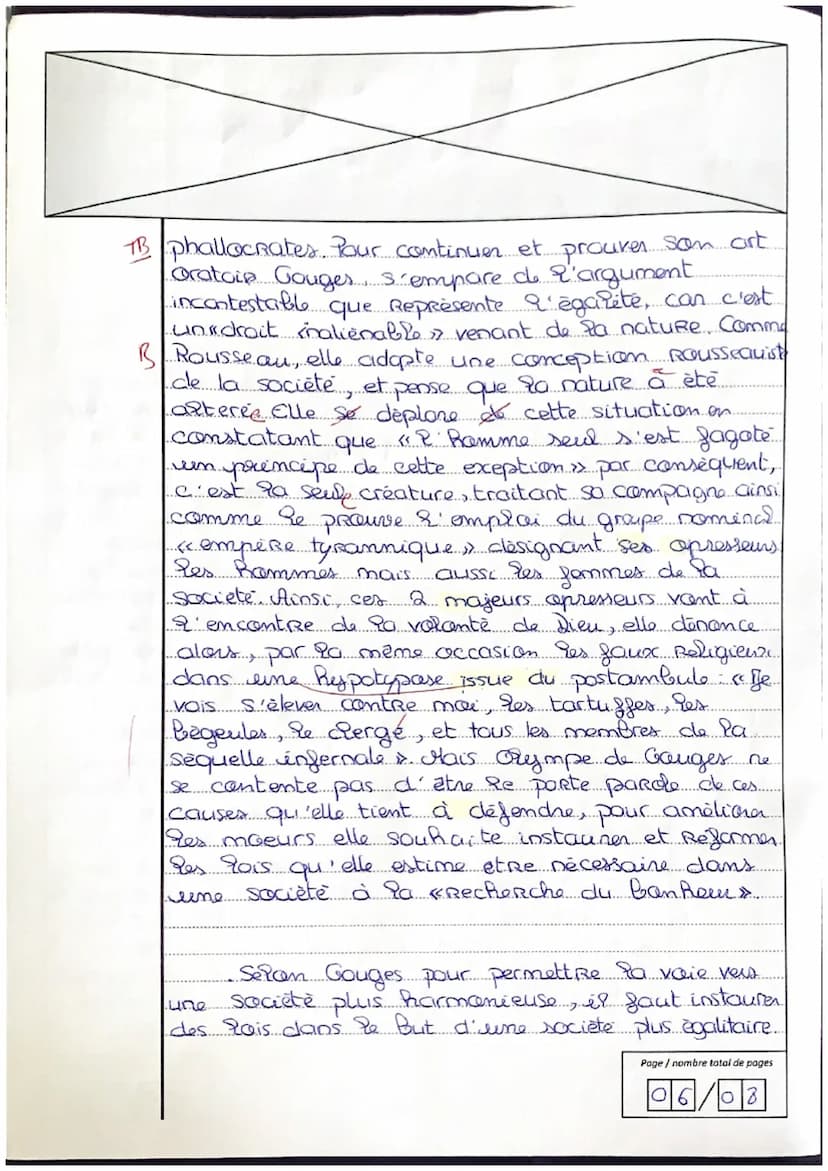 TB phallocrates. Pour continuer et prouver son art
oratoire Gouges, s'empare de l'argument
incontestable que représente l'égalité, car c'est
un « droit inaliénable » venant de la nature. Comme
B Rousseau, elle adopte une conception rousseauiste
de la société, et pense que la nature a été
alterée Elle se déplore de cette situation en
constatant que « l'homme seul s'est fagoté
un principe de cette exception » par conséquent,
c'est la seule créature, traitant sa compagne ainsi
comme le prouve l'emploi du groupe nominal
« empire tyrannique » désignant ses opresseurs
les hommes mais aussi les femmes de la
société. Ainsi, ces 2 majeurs opresseurs vont à
l'encontre de la volonté de Dieu, elle dénonce
alors, par la même occasion les faux religieux
dans une hypotypose issue du postambule : « Je
vois s'élever contre moi, les tartuffes, les
bégeules, le clergé, et tous les membres de la
séquelle infernale ». Mais Olympe de Gouges ne
se contente pas d'être le porte parole de ces
causes qu'elle tient à défendre, pour améliorer
les moeurs elle souhaite instaurer et réformer
les lois qu'elle estime etre nécessaire dans
une société à la « recherche du bonheur ».
Selon Gouges pour permettre la voie vers
une société plus harmonieuse, il faut instaurer
des lois dans le but d'une société plus égalitaire.
Page / nombre total de pages
06/08